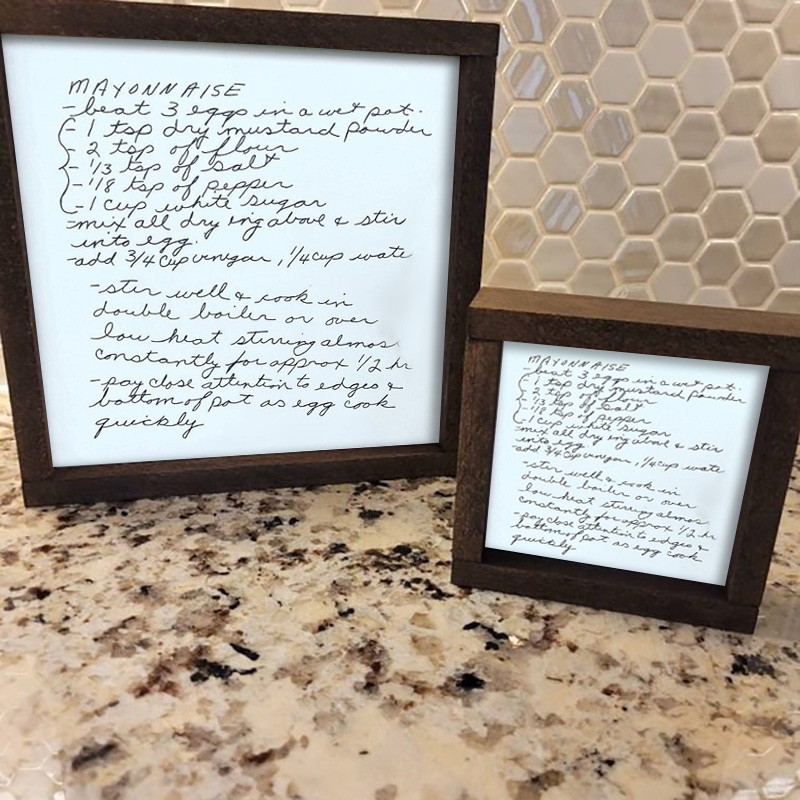 MAYONNAISE
- beat 3 eggs in a wet pot.
- 1 tsp dry mustard powder
- 2 tsp of flour
- 1/3 tsp of salt
- 1/8 tsp of pepper
- 1 cup white sugar
- mix all dry ing above & stir
into egg.
- add 3/4 cup vinegar, 1/4 cup wate
- stir well & cook in
double boiler or over
low heat stirring almos
constantly for approx 1/2 hr
- pay close attention to edges &
bottom of pot as egg cook
quickly
MAYONNAISE
- beat 3 eggs in a wet pot.
- 1 tsp dry mustard powder
- 2 tsp of flour
- 1/3 tsp of salt
- 1/8 tsp of pepper
- 1 cup white sugar
- mix all dry ing above & stir
into egg.
- add 3/4 cup vinegar, 1/4 cup wate
- stir well & cook in
double boiler or over
low heat stirring almos
constantly for approx 1/2 hr
- pay close attention to edges &
bottom of pot as egg cook
quickly